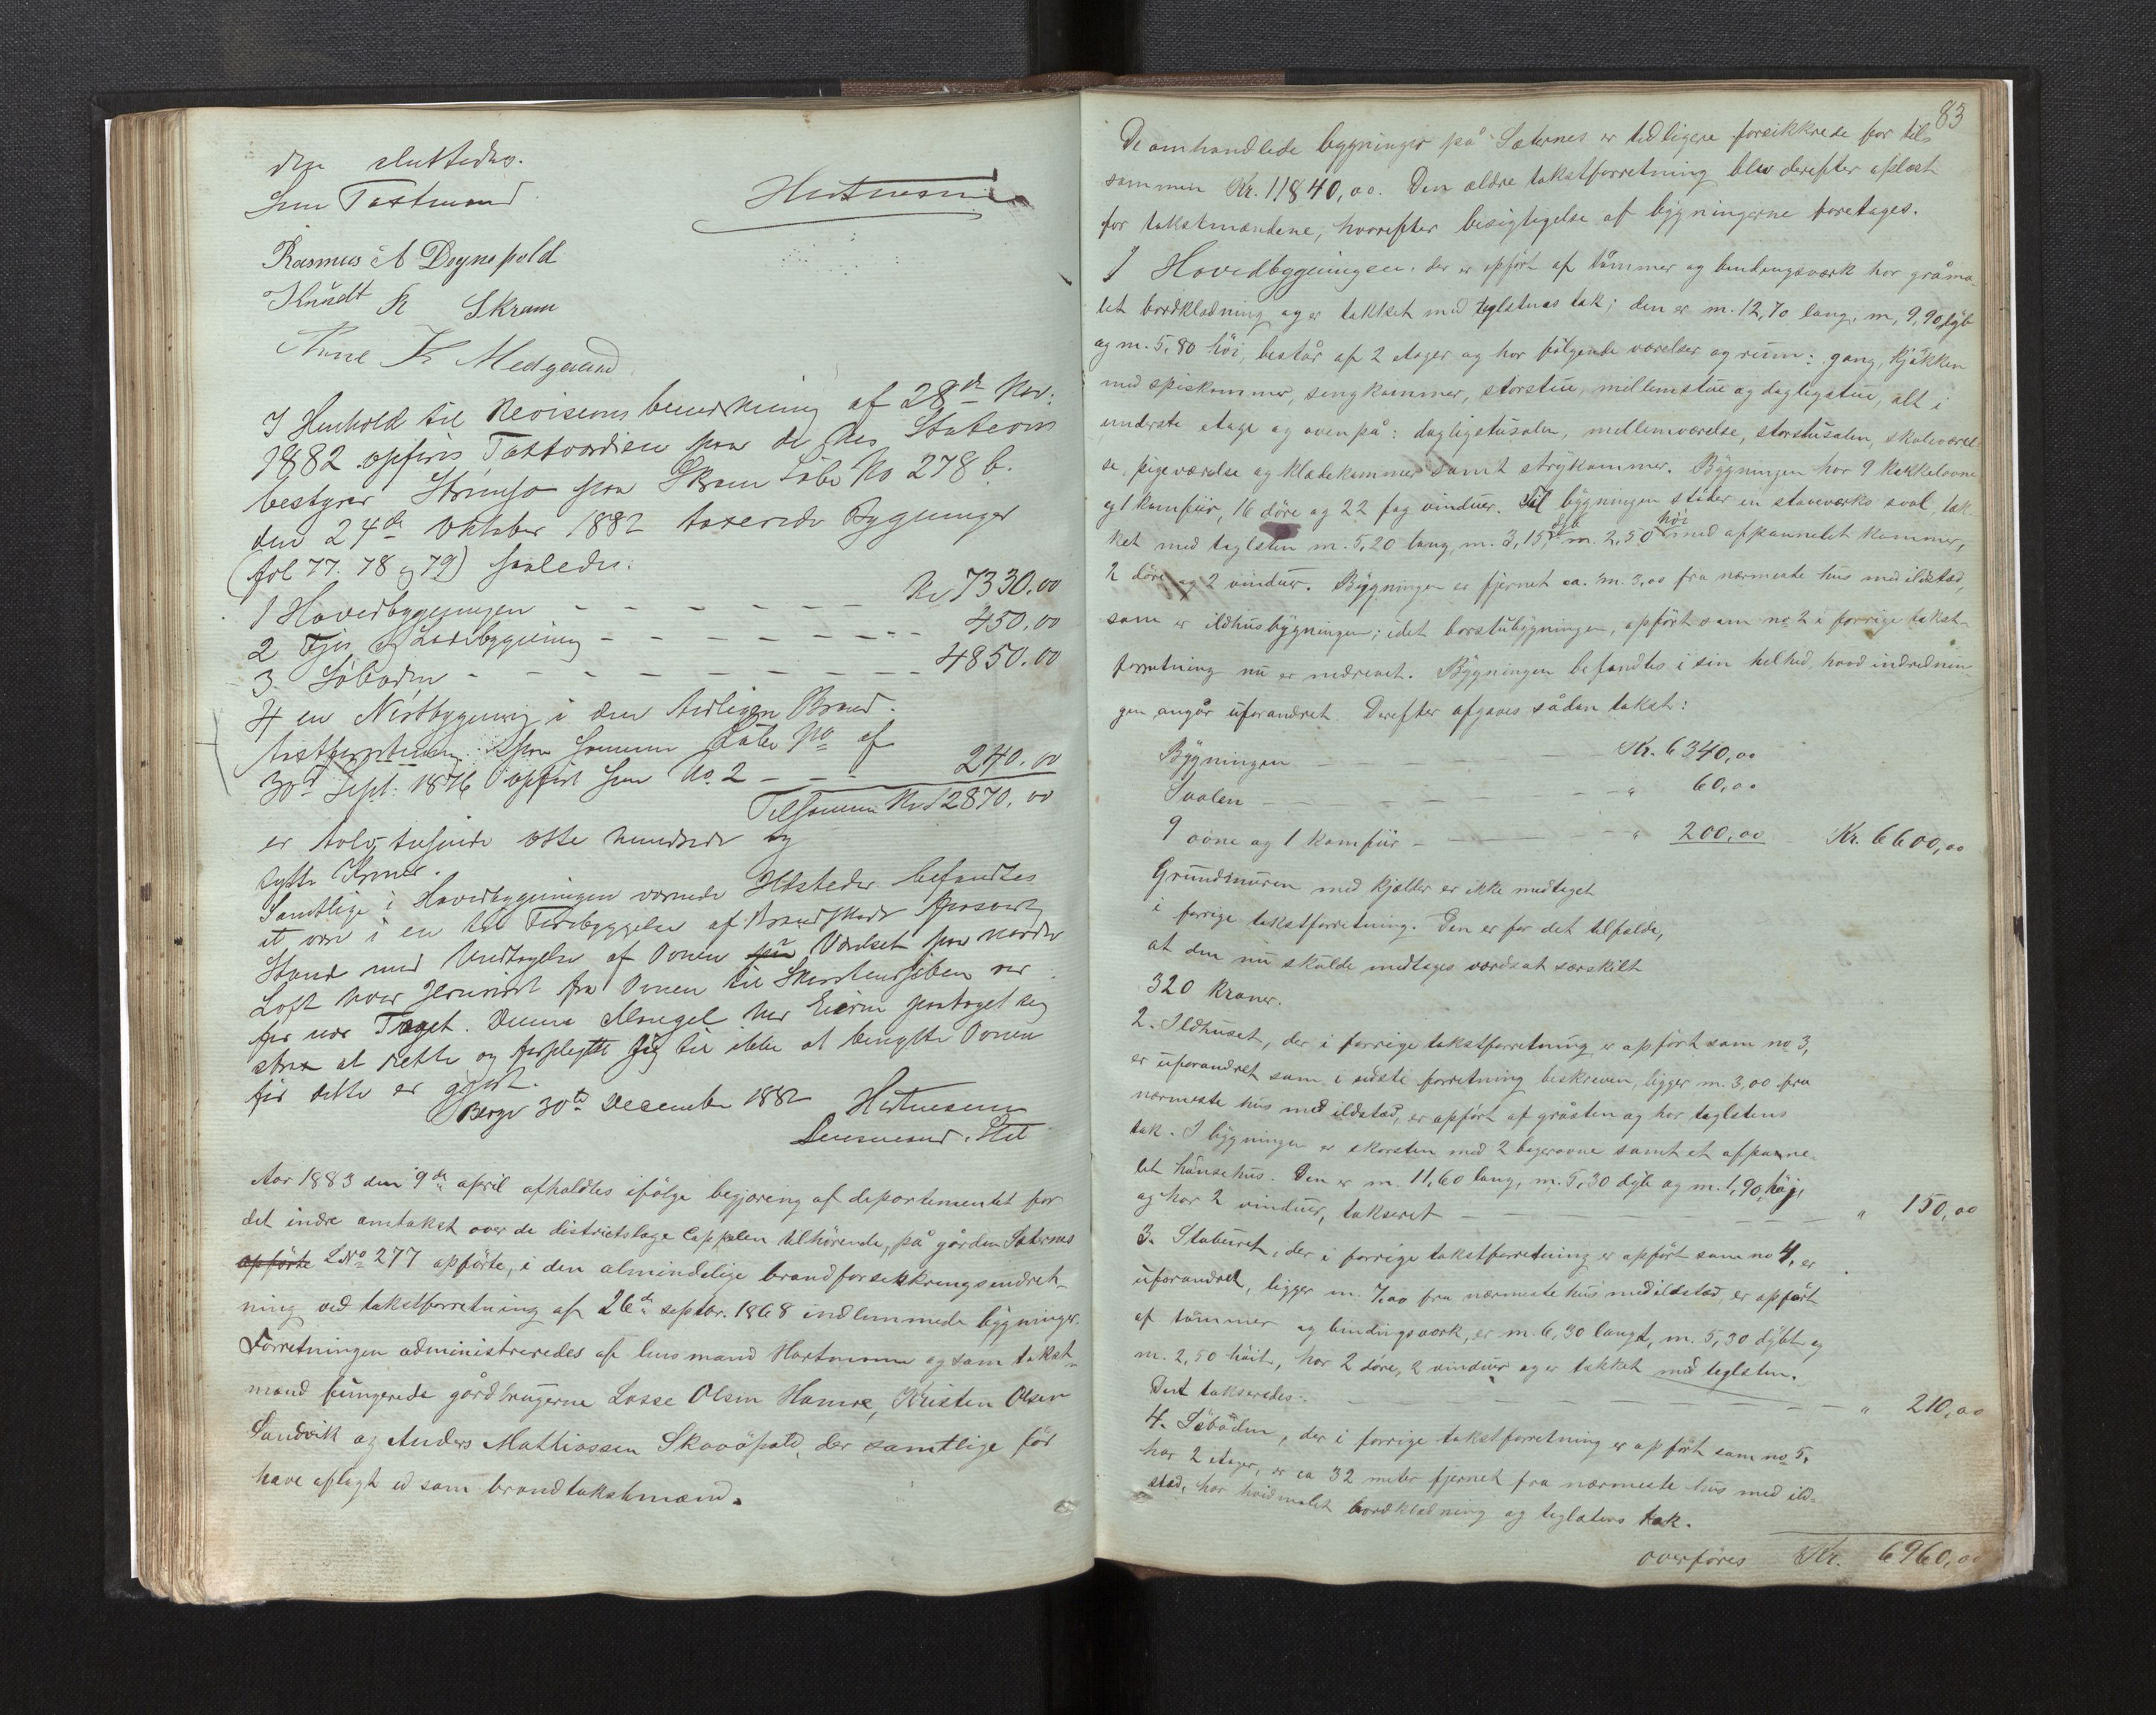 den sluttedes.
som Taxtmænd
Hartmann
Rasmus A Degnepold
Knudt R Skram
Arne K Medgaard
I Henhold til Revisions bemærkning af 28de Nov:
1882 opføres Taxtværdien paa de hos Stations
bestyrer paa Skram Løbe No 278 b.
den 24de Oktober 1882 taxerede Bygninger
(fol 77. 78 og 79) saaledes:
1 Hovedbygningen - - - - - - Kr 7330.00
2 Fjøs og Ladebygning - - - - - - - - 450.00
3 Søboden - - - - - - - - 4850.00
4 en Nøstbygning i den tidligere Brand-
taxtforretning paa samme Løbe No af
30te Sept. 1876 opført som No. 2 - - - 240.00
Tilsammen Kr 12870.00
er tolv tusinde otte hundrede og
sytti Kroner.
Samtlige i Hovedbygningen værende Ildsteder befandtes
at være i en til Forebyggelse af Brandskade forsvarlig
Stand med Undtagelse af Ovnen Værelset paa nordre
Loft hvor Jernrøret fra Ovnen til Skorstenspiben var
for nær Taget. Denne Mangel har Eieren paataget sig
strax at rette og forpligtet sig til ikke at benytte Ovnen
før dette er gjort.
Berge 30te December 1882 Hartmann
Lensmand. Std
Aar 1883 den 9de april afholdtes ifølge begjæring af departementet for
det indre omtakst over de distriktslæge Cappelen tilhørende, på gården Sæternes
opførte LNo 277 opførte, i den almindelige brandforsikkringsindret-
ning ved takstforretning af 26de septbr. 1868 indlemmede bygninger.
Forretningen administreredes af lensmand Hartmann og som takst-
mænd fungerede gårdbrugerne Lasse Olsen Hamre, Kristen Olsen
Sandvik og Anders Mathiassen Skavøpold, der samtlige før
have aflagt ed som brandtakstmænd.
83
De omhandlede bygninger på Sæternes er tidligere forsikkrede for til-
sammen Kr. 11840,00. Den ældre takstforretning blev derefter oplæst
for takstmændene, hvorefter besigtigelse af bygningerne foretages.
1 Hovedbygningen, der er opført af tømmer og bindingsværk har gråma-
let bordklædning og er tækket med teglstens tak; den er m. 12,70 lang, m. 9,90 dyb
og m. 5,80 høi, består af 2 etager og har følgende værelser og rum: gang, kjøkken
med spiskammer, sengkammer, storstue, mellemstue og dagligstue, alt i
underste etage og ovenpå: dagligstusalen, mellemværelse, storstusalen, skoleværel-
se, pigeværelse og klædekammer samt strykammer. Bygningen har 9 kakkelovne
og 1 komfür, 16 døre og 22 fag vinduer. Til bygningen støder en staveværks sval, tæk-
ket med teglsten m. 5,20 lang, m. 3,15 dyb m. 2,50 høi med afpannelet kammer,
2 døre og 2 vinduer. Bygningen er fjernet ca. m. 3,00 fra nærmeste hus med ildsted,
som er ildhusbygningen; idet borstubygningen, opført som no 2 i forrige takst-
forretning nu er nedrevet. Bygningen befandtes i sin helhed, hvad indrednin-
gen angår uforandret. Derefter afgaves sådan takst:
Bygningen - - - - - Kr. 6340,00
Svalen - - - - - - " 60,00
9 ovne og 1 komfür - - - - " 200,00 Kr. 6600,00
Grundmuren med kjælder er ikke medtaget
i forrige takstforretning. Den er for det tilfælde,
at den nu skulde medtages værdsat særskilt
320 kroner.
2. Ildhuset, der i forrige takstforretning er opført som no 3,
er uforandret som i sidste forretning beskreven, ligger m. 3,00 fra
nærmeste hus med ildsted, er opført af gråsten og har teglstens
tak. I bygningen er skorsten med 2 bagerovne samt et afpanne-
let hønsehus. Den er m. 11,60 lang, m. 5,30 dyb og m. 1,90 høj,
og har 2 vinduer, takseret - - - - - - " 150,00
3. Staburet, der i forrige takstforretning er opført som no 4, er
uforandret, ligger m. 7,00 fra nærmeste hus med ildsted, er opført
af tømmer og bindingsværk, er m. 6,30 langt, m. 5,30 dybt og
m. 2,50 høit, har 2 døre, 2 vinduer og er tækket med teglsten.
Det takseredes: - - - - - - " 210,00
4. Søboden, der i forrige takstforretning er opført som no 5.
har 2 etager, er ca 32 meter fjernet fra nærmeste hus med ild-
sted, har hvidmalet bordklædning og teglstens tak.
overføres Kr. 6960,00